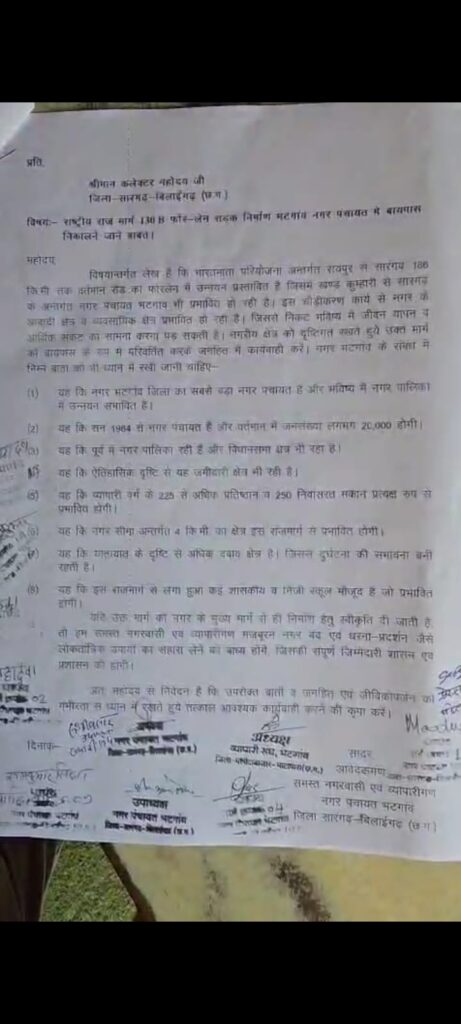 प्रति,
श्रीमान कलेक्टर महोदय जी
जिला–सारगढ़–बिलाईगढ़ (छ.ग.)
विषय:- राष्ट्रीय राज मार्ग 130 B फोर-लेन सड़क निर्माण भटगांव नगर पंचायत में बायपास
निकाले जाने बाबत।
महोदय,
विषयान्तर्गत लेख है कि भारतमाता परियोजना अन्तर्गत रायपुर से सारंगढ़ 186
कि.मी. तक वर्तमान रोड का फोरलेन में उन्नयन प्रस्तावित है जिसमें खण्ड कुम्हारी से सारंगढ़
के अन्तर्गत नगर पंचायत भटगांव भी प्रभावित हो रही है। इस चौड़ीकरण कार्य से नगर के
आबादी क्षेत्र व व्यवसायिक क्षेत्र प्रभावित हो रहा है। जिससे निकट भविष्य में जीवन यापन व
आर्थिक संकट का सामना करना पड़ सकती है। नगरीय क्षेत्र को दृष्टिगत रखते हुये उक्त मार्ग
को बायपास के रूप में परिवर्तित करके जनहित में कार्यवाही करें। नगर भटगांव के संबंध में
निम्न बातों को भी ध्यान में रखी जानी चाहिए–
(1) यह कि नगर भटगांव जिला का सबसे बड़ा नगर पंचायत है और भविष्य में नगर पालिका
में उन्नयन संभावित है।
(2) यह कि सन 1984 से नगर पंचायत हैं और वर्तमान में जनसंख्या लगभग 20,000 होगी।
यह कि पूर्व में नगर पालिका रही हैं और विधानसभा क्षेत्र भी रहा है।
यह कि ऐतिहासिक दृष्टि से यह जमींदारी क्षेत्र भी रही है।
(5) यह कि व्यापारी वर्ग के 225 से अधिक प्रतिष्ठान व 250 निवासरत मकान प्रत्यक्ष रुप से
प्रभावित होगी।
(6) यह कि नगर सीमा अन्तर्गत 4 कि.मी. का क्षेत्र इस राजमार्ग से प्रभावित होगी।
यह कि यातायात के दृष्टि से अधिक दबाव क्षेत्र है। जिससे दुर्घटना की संभावना बनी
रहती है।
(8) यह कि इस राजमार्ग से लगा हुआ कई शासकीय व निजी स्कूल मौजूद है जो प्रभावित
होगी।
यदि उक्त मार्ग को नगर के मुख्य मार्ग से ही निर्माण हेतु स्वीकृति दी जाती है,
तो हम समस्त नगरवासी एवं व्यापारीगण मजबूरन नगर बंद एवं धरना-प्रदर्शन जैसे
लोकतांत्रिक उपायों का सहारा लेने को बाध्य होंगे, जिसकी संपूर्ण जिम्मेदारी शासन एवं
प्रशासन की होगी।
अतः महोदय से निवेदन है कि उपरोक्त बातों व जनहित एवं जीविकोपार्जन को
गंभीरता से ध्यान में रखते हुये तत्काल आवश्यक कार्यवाही करने की कृपा करें।
दिनांक-
अध्यक्ष
व्यापारी संघ, भटगांव
सादर
आवेदकगण
समस्त नगरवासी एवं व्यापारीगण
नगर पंचायत भटगांव
जिला सारंगढ़-बिलाईगढ़ (छ.ग.)
उपाध्यक्ष
नगर पंचायत भटगांव